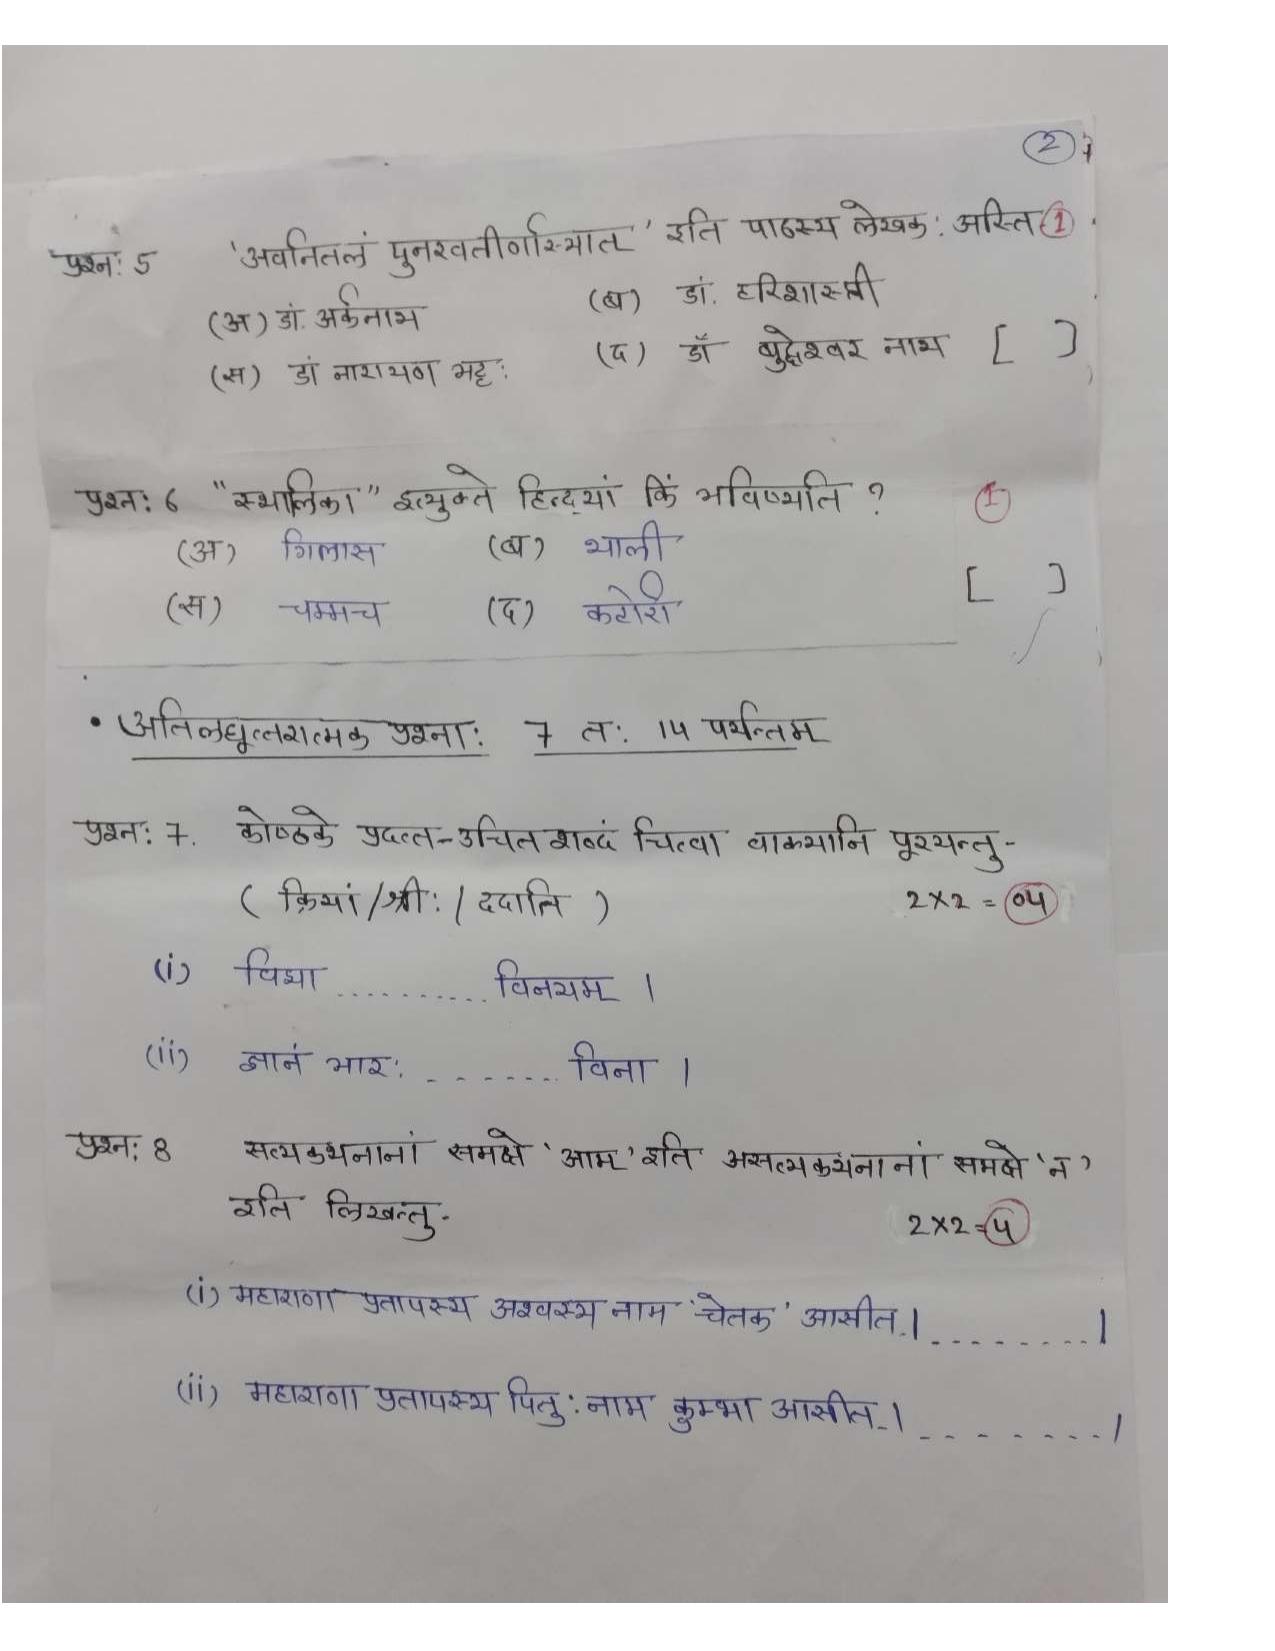 2
प्रश्न: 5 'अवनितलं पुनरवतीर्णास्यात्' इति पाठस्य लेखक: अस्ति 1
(अ) डां. अर्कनाथ (ब) डां. हरिशास्त्री
(स) डां नारायण भट्ट: (द) डॉ बुद्धेश्वर नाथ [ ]
प्रश्न: 6 "स्थालिका" इत्युक्ते हिन्द्यां किं भविष्यति ? 1
(अ) गिलास (ब) थाली
(स) चम्मच (द) कटोरी [ ]
• अतिलघूत्तरात्मक प्रश्ना: 7 त: 14 पर्यन्तम्
प्रश्न: 7. कोष्ठके प्रदत्त-उचित शब्दं चित्वा वाक्यानि पूरयन्तु-
( क्रियां / श्री: / ददाति ) 2×2 = 04
(i) विद्या .......... विनयम् ।
(ii) ज्ञानं भार: - - - - - - - विना ।
प्रश्न: 8 सत्यकथनानां समक्षे 'आम' इति असत्यकथनानां समक्षे 'न'
इति लिखन्तु- 2×2=4
(i) महाराणा प्रतापस्य अश्वस्य नाम 'चेतक' आसीत्। - - - - - - - - ।
(ii) महाराणा प्रतापस्य पितु: नाम कुम्भा आसीत्। - - - - - - - - ।